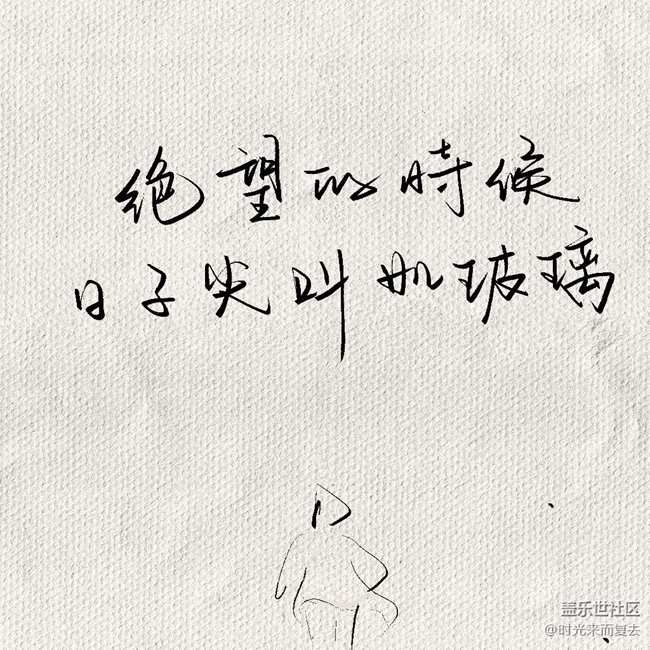 绝望的時候
日子尖叫如玻璃
盖乐世社区
@时光来而复去